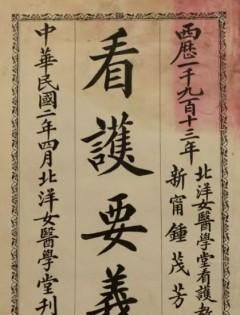 西歷一千九百十三年
北洋女醫學堂看護教
新甯鍾茂芳
看護要義
中華民國二年四月北洋女醫學堂刊